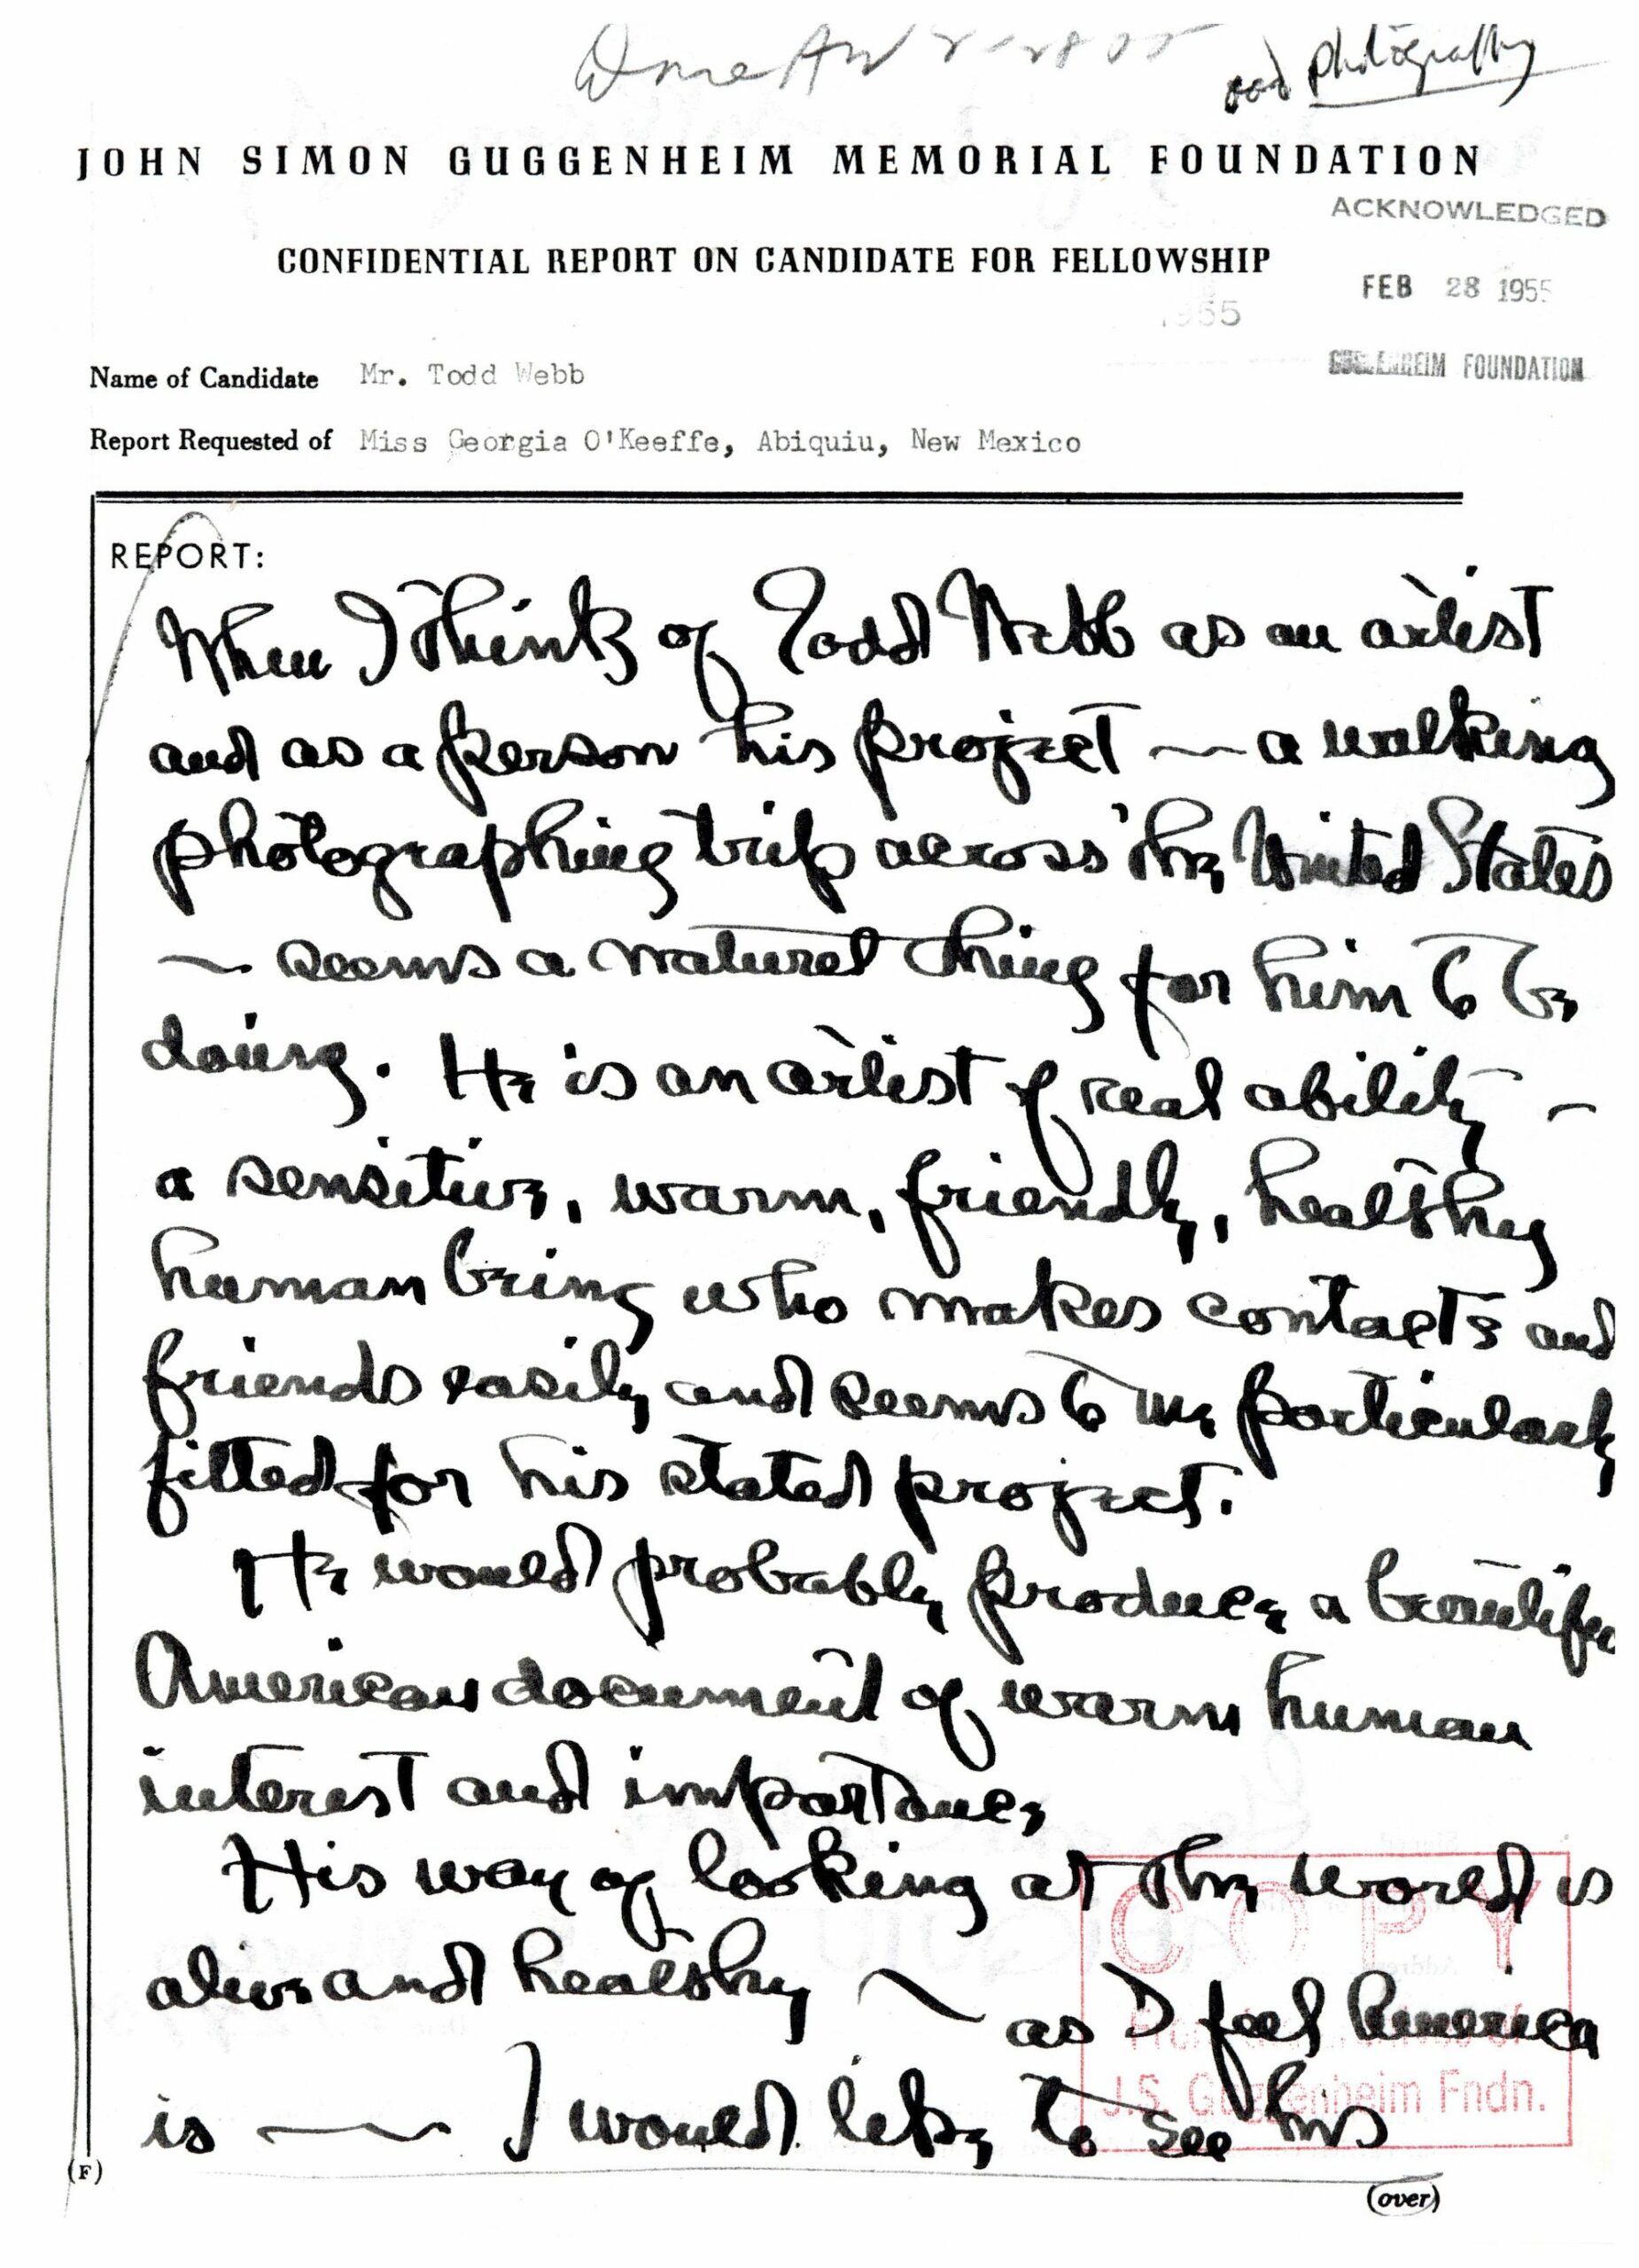 photography
JOHN SIMON GUGGENHEIM MEMORIAL FOUNDATION
ACKNOWLEDGED
CONFIDENTIAL REPORT ON CANDIDATE FOR FELLOWSHIP
FEB 28 1955
1955
GUGGENHEIM FOUNDATION
Name of Candidate Mr. Todd Webb
Report Requested of Miss Georgia O'Keeffe, Abiquiu, New Mexico
REPORT:
When I think of Todd Webb as an artist
and as a person his project ~ a walking
photographing trip across the United States
~ seems a natural thing for him to be
doing. He is an artist of real ability ~
a sensitive, warm, friendly, healthy
human being who makes contacts and
friends easily and seems to me particularly
fitted for his stated project.
He would probably produce a beautiful
American document of warm human
interest and importance
His way of looking at the world is
alive and healthy ~ as I feel America
is ~ I would like to see his
COPY
J.S. Guggenheim Fndn.
(F)
(over)